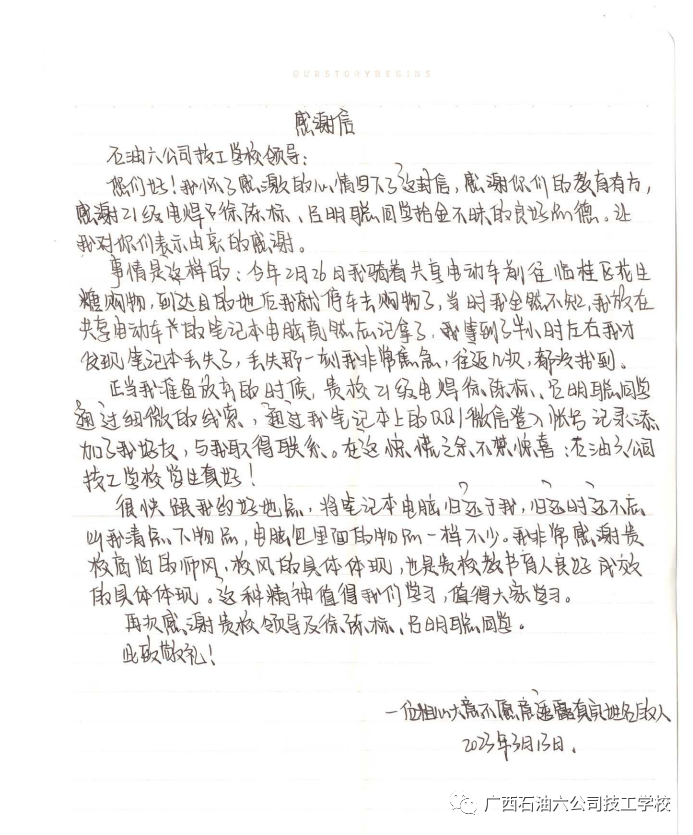 OURSTORYBEGINS
感谢信
石油六公司技工学校领导:
您们好!我怀了感激的心情写下了这封信,感谢你们的教育有方,
感谢21级电焊 徐陈标、吕明聪同学拾金不昧的良好品德。让
我对你们表示由衷的感谢。
事情是这样的:今年2月26日我骑着共享电动车前往临桂区花生
糖购物,到达目的地后我就停车去购物了,当时我全然不知,我放在
共享电动车 的笔记本电脑竟然忘记拿了,我等到了半小时左右我才
发现笔记本丢失了,丢失那一刻我非常焦急,往返几次,都没找到。
正当我准备放弃的时候,贵校21级电焊徐陈标、吕明聪同学
通过细微的线索,通过我笔记本上的QQ/微信登入帐号记录添
加了我好友,与我取得联系。在这惊慌之余不禁惊喜:石油六公司
技工学校学生真好!
很快跟我约好地点,将笔记本电脑归还于我,归还时还不忘
叫我清点下物品,电脑包里面的物品一样不少。我非常感谢贵
校高尚的师风、校风的具体体现,也是贵校教书育人良好成效
的具体体现。这种精神值得我们学习,值得大家学习。
再次感谢贵校领导及徐陈标、吕明聪同学。
此致敬礼!
一位粗心大意不愿意透露真实姓名的人
2023年3月13日.
广西石油六公司技工学校